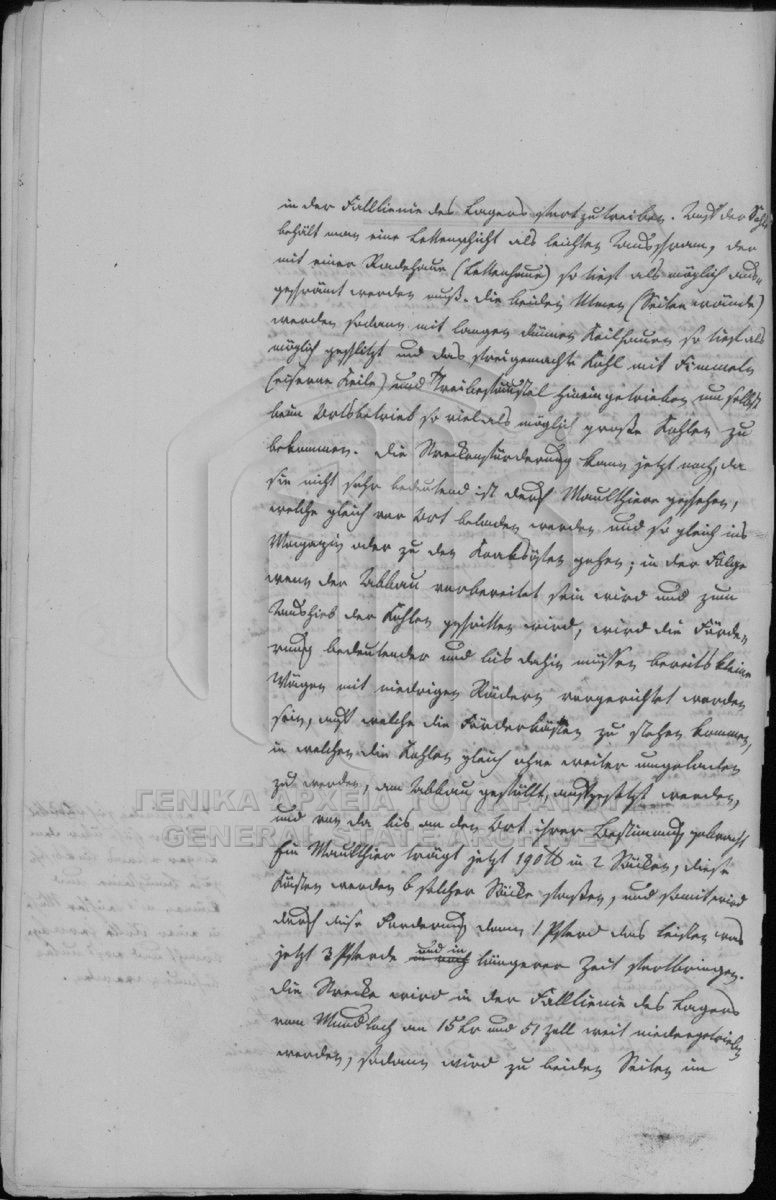 in der Falllienie des Lagers fort zu treiben. Auf der Sohle
behält man eine Lettenschicht als leichten Ausschram, der
mit einer Radehaue (Lettenhaue) so tief als möglich aus-
geschrämt werden muß. Die beiden Ulmen (Seiten wände)
werden sodann mit langen dünnen Keilhauen so tief als
möglich geschlitzt und das freigemachte Kohl mit Fimmeln
(eiserne Keile) und Treibefäustel hineingetrieben um selbst
beim Ortsbetrieb so viel als möglich große Kohlen zu
bekommen. Die Streckenförderung kann jetzt noch, da
sie nicht sehr bedeutend ist durch Maulthiere geschehen,
welche gleich vor Ort beladen werden und so gleich ins
Magazin oder zu den Koaksöfen gehen; in der Folge
wenn der Abbau vorbereitet sein wird und zum
Aushieb der Kohlen geschritten wird, wird die Förde-
rung bedeutender und bis dahin müssen bereits kleine
Wägen mit niedrigen Rädern vorgerichtet werden
sein, auf welche die Förderkästen zu stehen kommen,
in welchen die Kohlen gleich ohne weiter umgeladen
zu werden, am Abbau gefüllt, aufgesetzt werden,
und von da bis an den Ort ihrer Bestimmung gebracht
Ein Maulthier trägt jetzt 190 ℔ in 2 Säcken, diese
Kästen werden 6 solcher Säcke fassen, und somit wird
durch diese Forderung dann 1 Pferd das leisten was
jetzt 3 Pferde und in längerer Zeit fortbringen.
Die Strecke wird in der Falllienie des Lagers
vom Mundloch an 15 Lr und 51 Zoll weit niedergetrieben
werden, sodann wird zu beiden Seiten im
ΓΕΝΙΚΑ ΑΡΧΕΙΑ ΤΟΥ ΚΡΑΤΟΥΣ
GENERAL STATE ARCHIVES